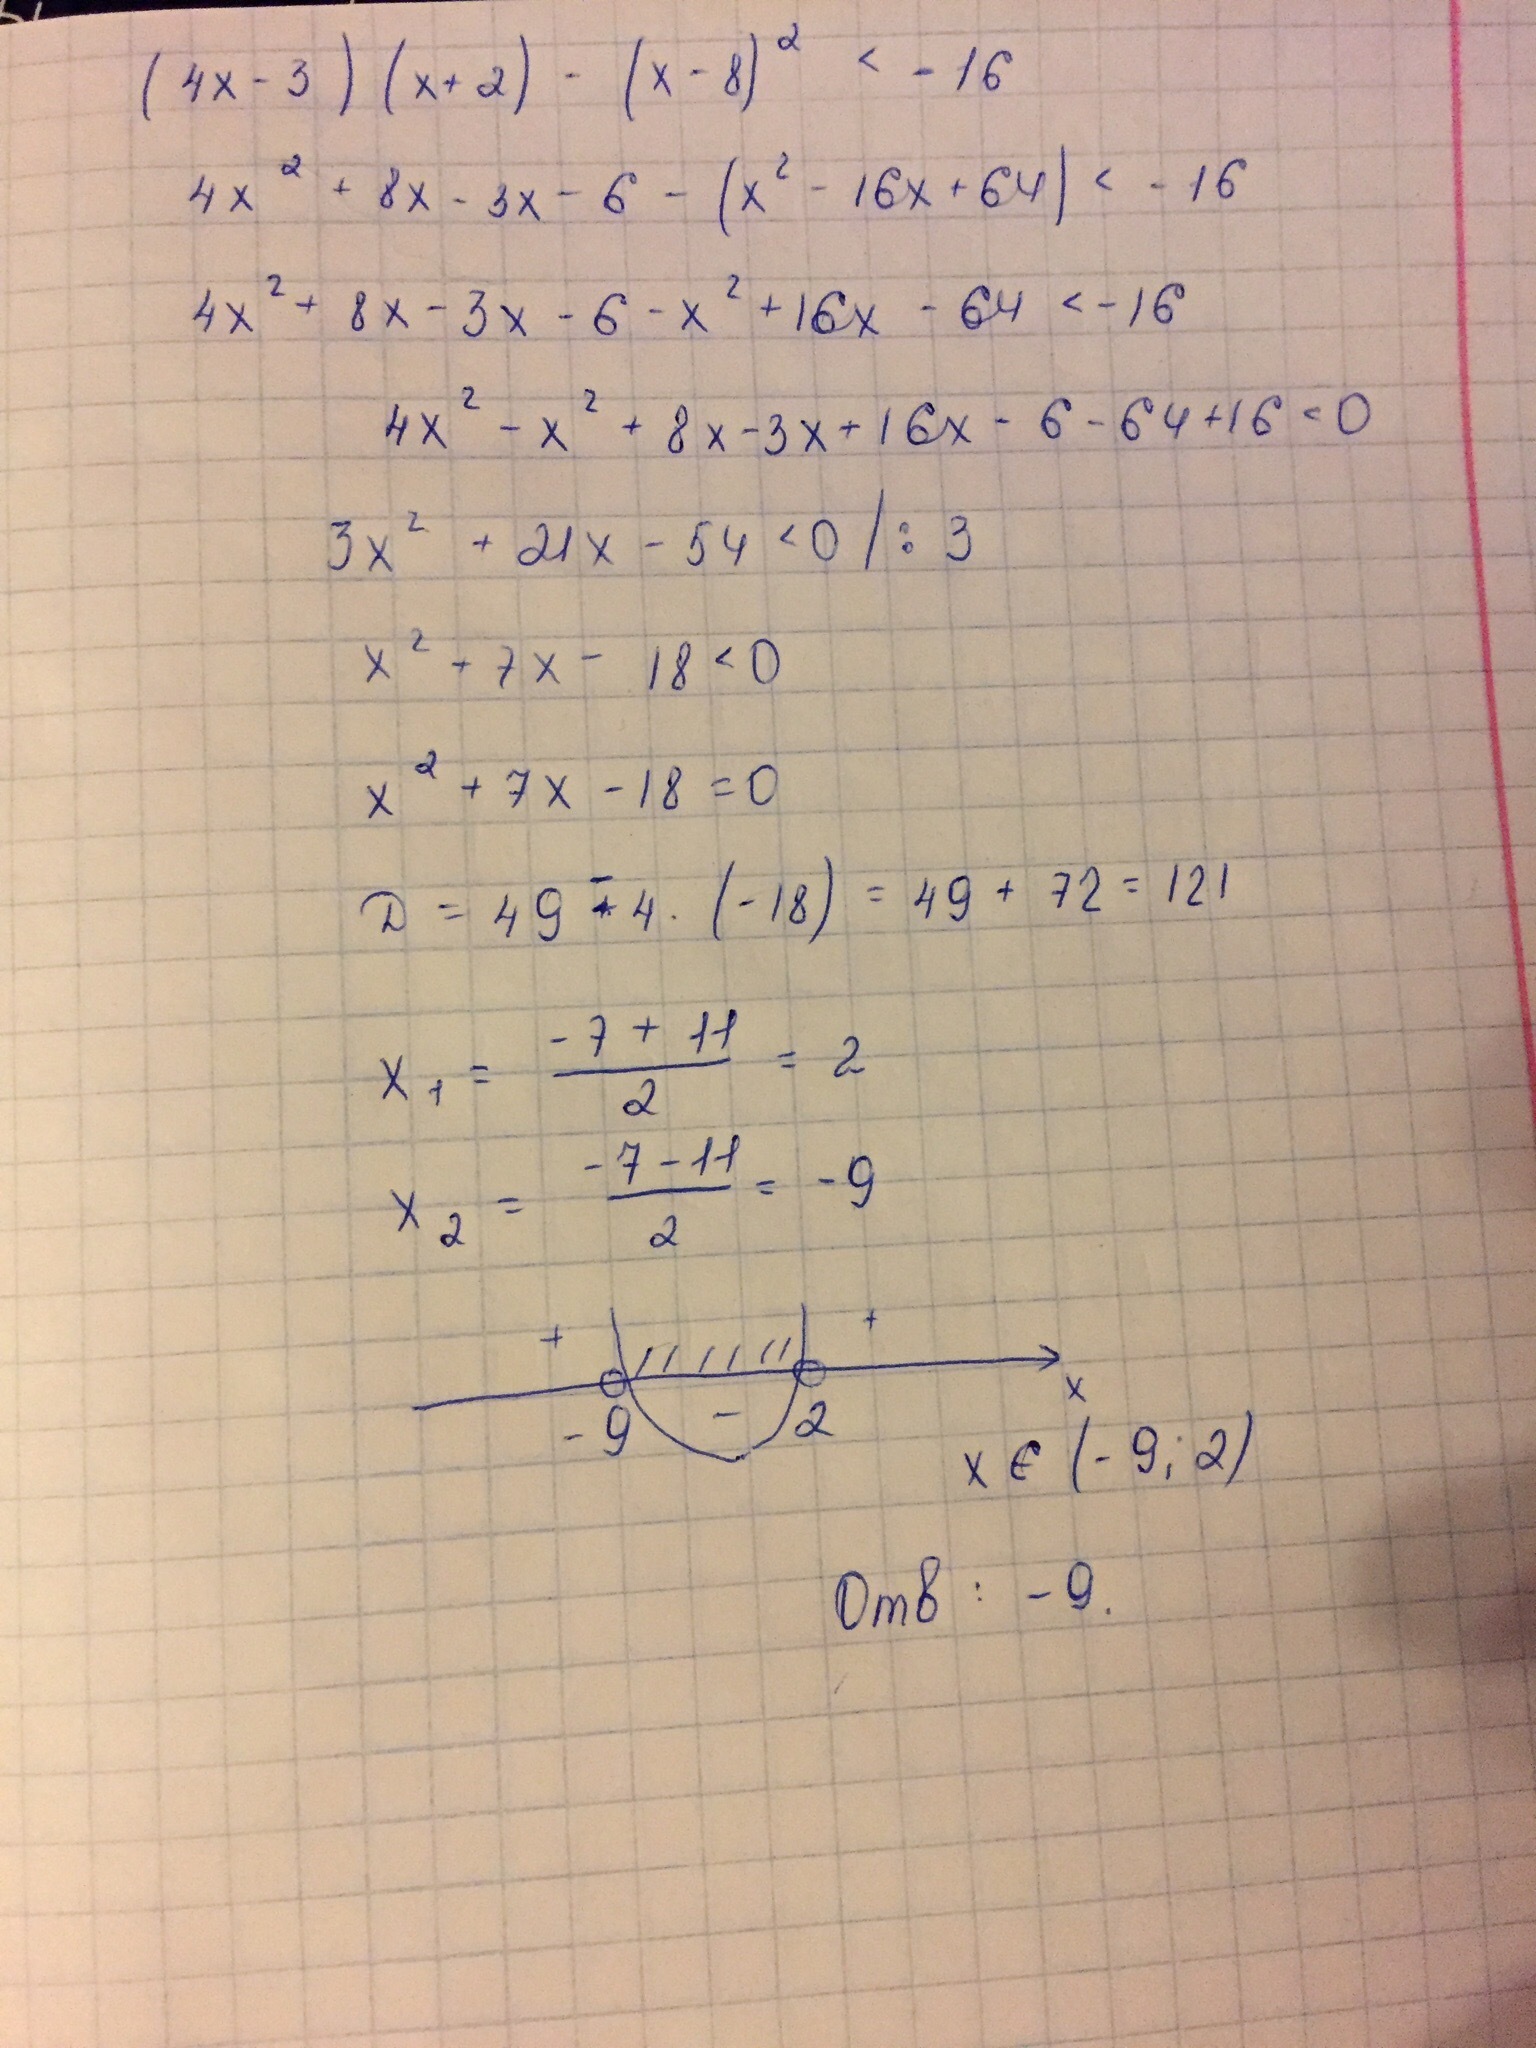 (4x - 3)(x + 2) - (x - 8)² < - 16
4x² + 8x - 3x - 6 - (x² - 16x + 64) < - 16
4x² + 8x - 3x - 6 - x² + 16x - 64 < - 16
4x² - x² + 8x - 3x + 16x - 6 - 64 + 16 < 0
3x² + 21x - 54 < 0 / : 3
x² + 7x - 18 < 0
x² + 7x - 18 = 0
D = 49 - 4 · (-18) = 49 + 72 = 121
x₁ = (-7 + 11)/2 = 2
x₂ = (-7 - 11)/2 = -9
+ +
-9 - 2 x
x ∈ (-9; 2)
Отв : -9.